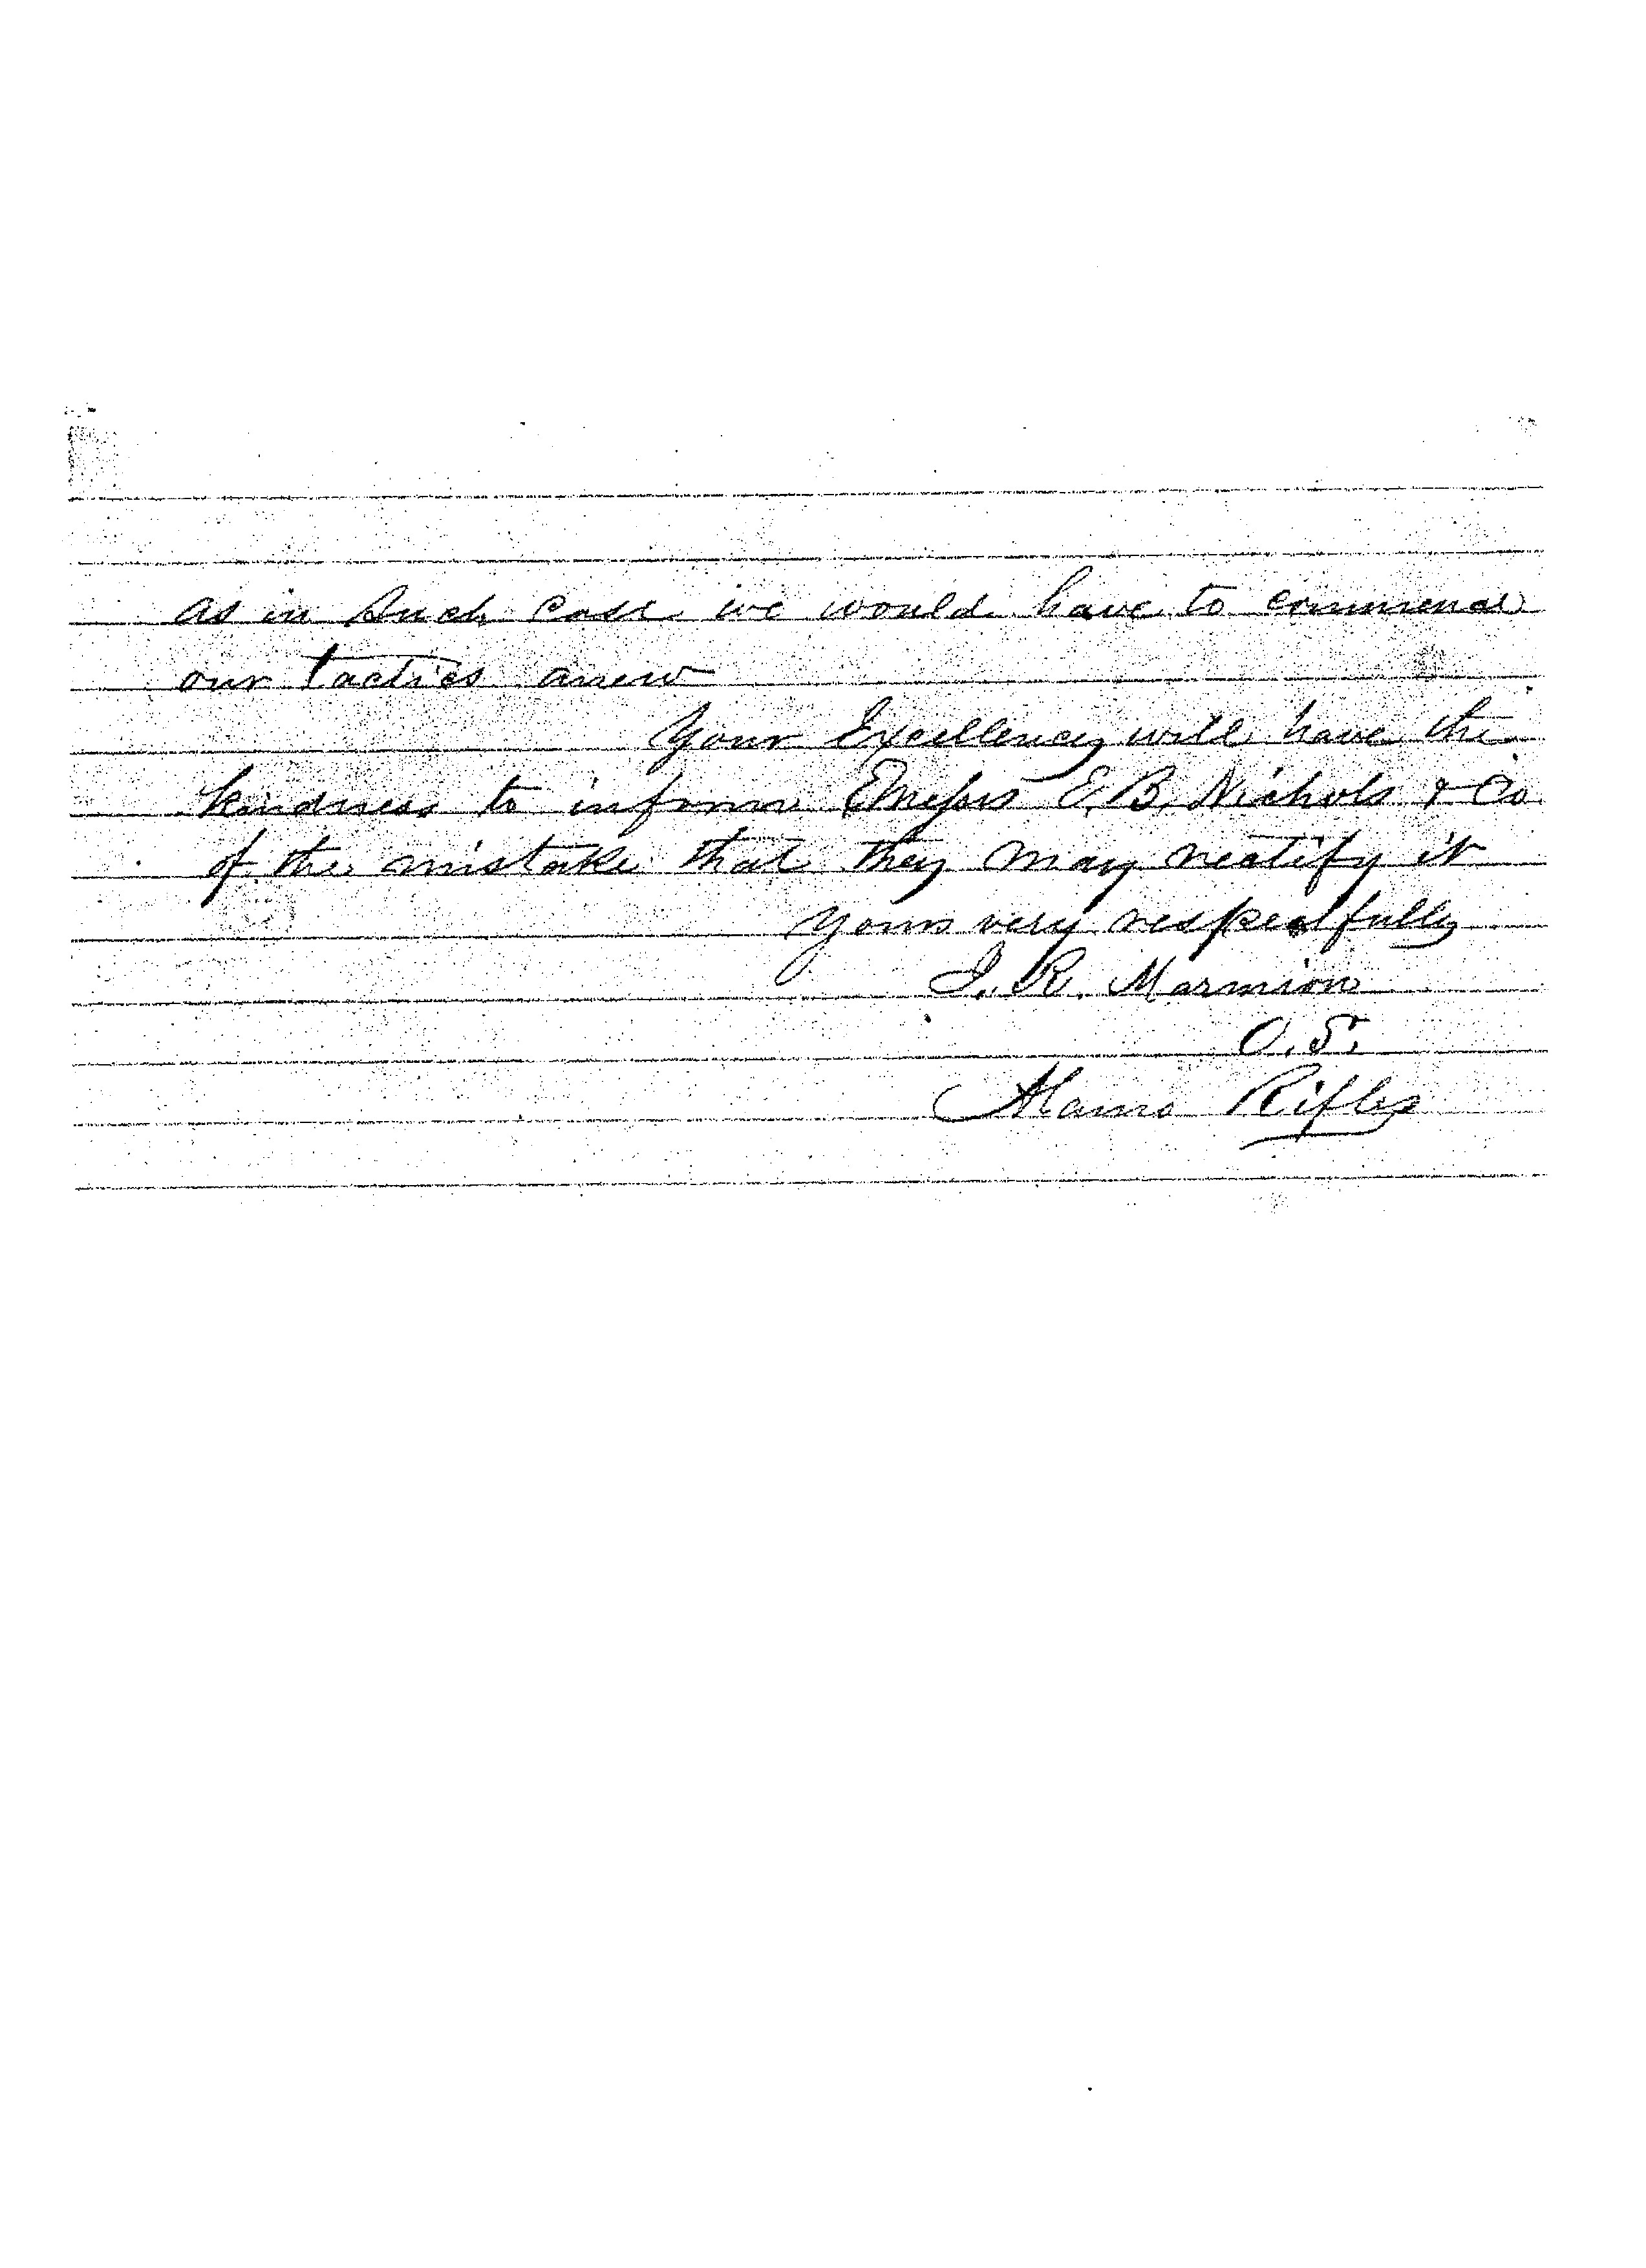 as in such case we would have to commence
our tactics anew
Your Excellency will have the
kindness to inform Messrs E. B. Nichols & Co
of the mistake that they may rectify it
Yours very respectfully
J. R. Marmion
O. S.
Alamo Rifles